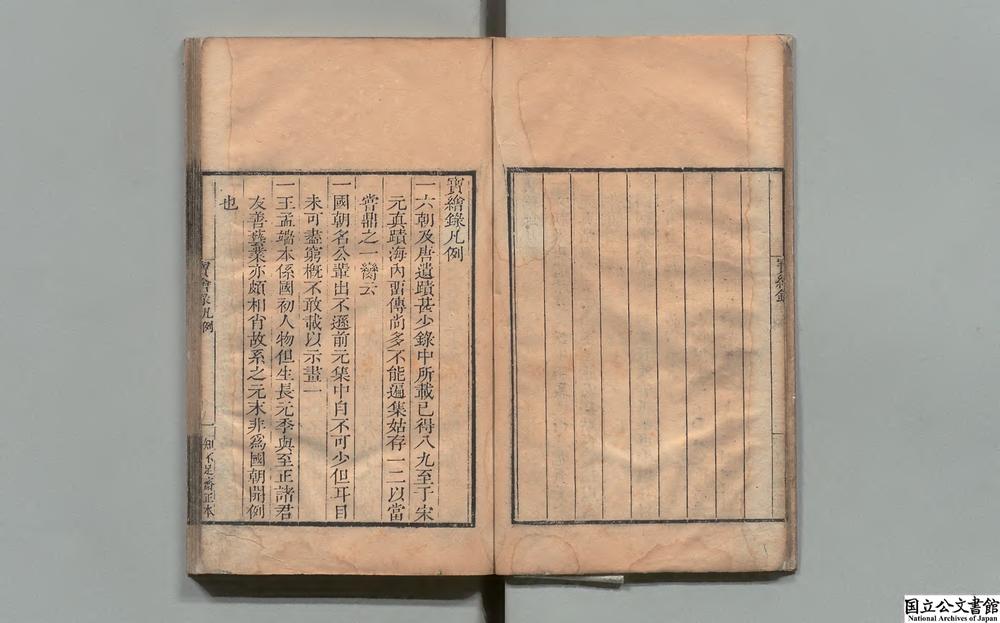 寶繪錄
寶繪錄凡例
一六朝及唐遺蹟甚少錄中所載已得八九至于宋
元真蹟海內畱傳尚多不能遍集姑存一二以當
嘗鼎之一臠云
一國朝名公輩出不遜前元集中自不可少但耳目
未可盡窮槪不敢載以示畫一
一王孟端本係國初人物但生長元季與至正諸君
友善藝業亦頗相肖故系之元末非爲國朝開例
也
寶繪錄凡例
一
知不足齋正本
国立公文書館
National Archives of Japan